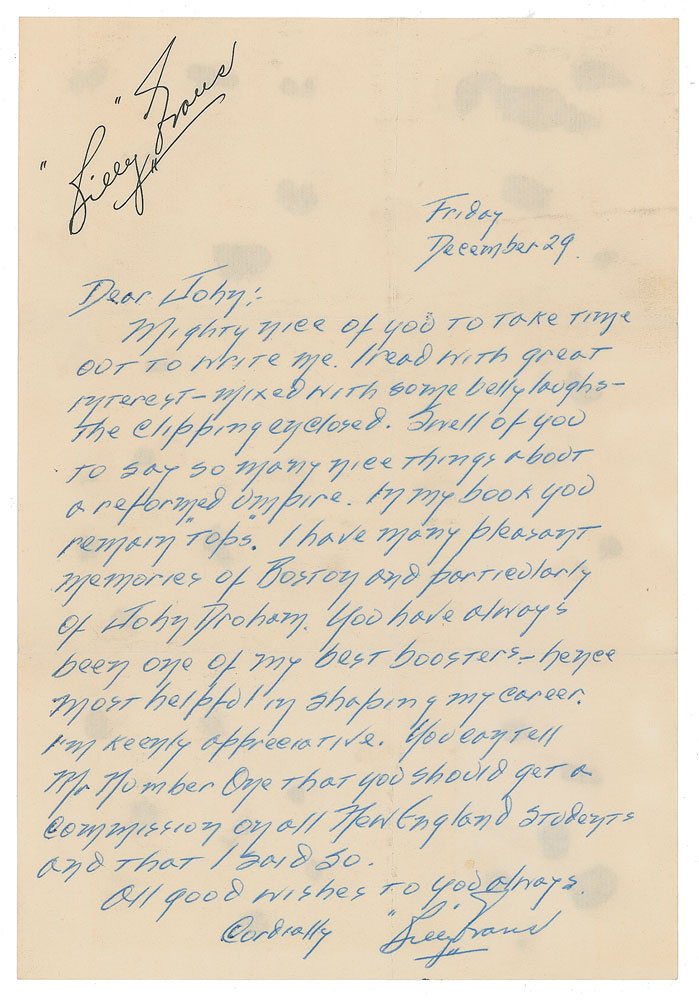 "Billy" Evans
Friday
December 29.
Dear John:-
Mighty nice of you to take time
out to write me. I read with great
interest - mixed with some belly laughs -
the clipping enclosed. Swell of you
to say so many nice things about
a reformed umpire. In my book you
remain "tops". I have many pleasant
memories of Boston and particularly
of John Drohan. You have always
been one of my best boosters - hence
most helpful in shaping my career.
I'm keenly appreciative. You can tell
Mr Number One that you should get a
commission on all New England students
and that I said so.
All good wishes to you always.
Cordially "Billy" Evans